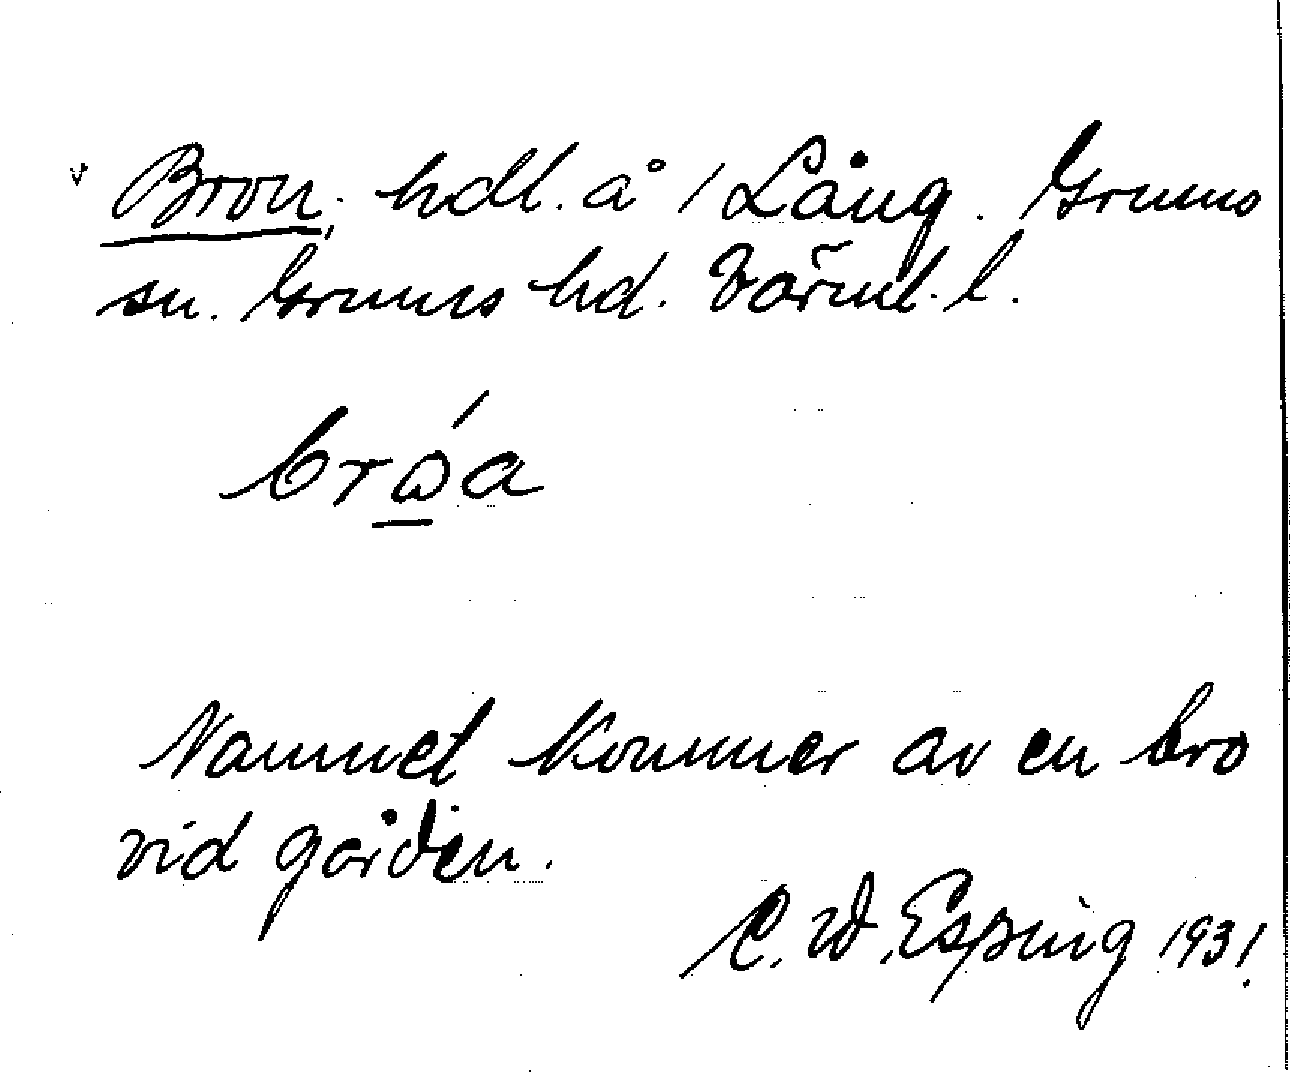 Bron, hdl. å 1 Lång. Grums
sn. Grums hd. Värml. l.
brώa
Namnet kommer av en bro
vid gården.
C. W. Esping 1931.